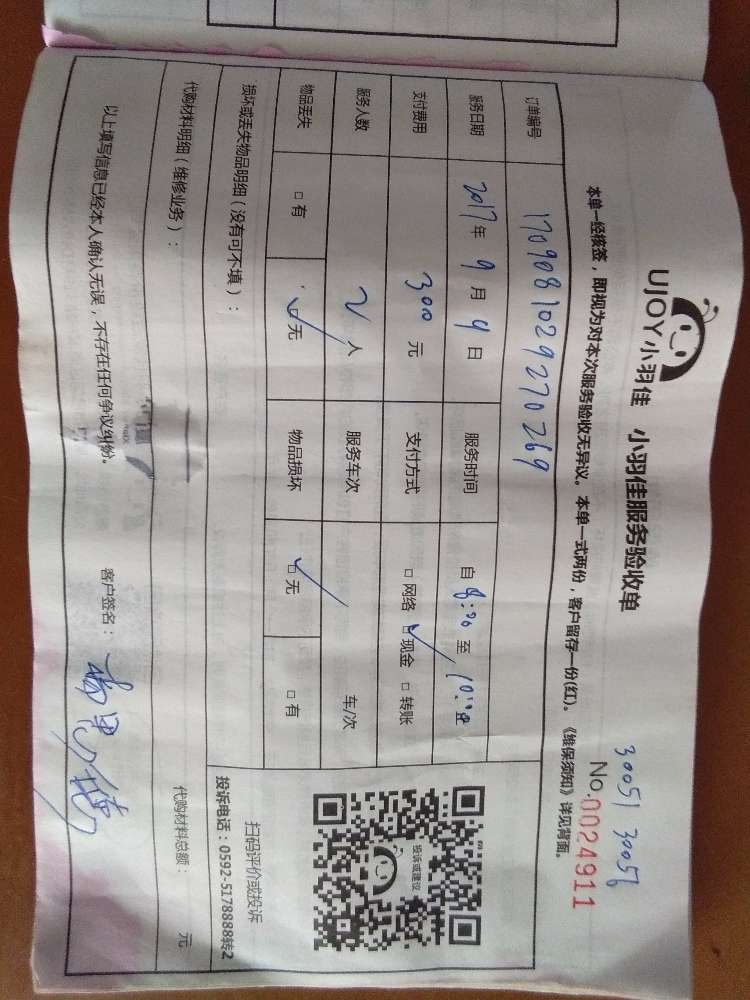 30051 30056
UJOY小羽佳 小羽佳服务验收单 No.0024911
本单一经核签，即视为对本次服务验收无异议。本单一式两份，客户留存一份(红)。《维保须知》详见背面。
订单编号 1709081029270269
服务日期 2017年 9月 9日 服务时间 自 8:00 至
支付费用 300 元 支付方式 □ 网络 ☑ 现金 □ 转账
服务人数 2 人 服务车次 车/次
物品丢失 □ 有 ☑ 无 物品损坏 ☑ 无 □ 有
投诉或建议
扫码评价或投诉
投诉电话：0592-5178888转2
损坏或丢失物品明细（没有可不填）：
代购材料明细（维修业务）： 代购材料总额： 元
以上填写信息已经本人确认无误，不存在任何争议纠纷。 客户签名：